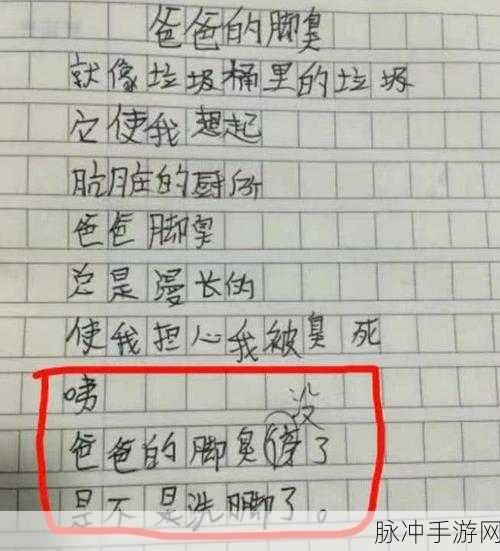 爸爸的脚臭
就像垃圾桶里的垃圾
它使我想起
肮脏的厨所
爸爸脚臭
总是漫长的
使我担心我被臭死
咦
没
爸爸的脚臭了
是不是洗脚了。
脉冲手游网